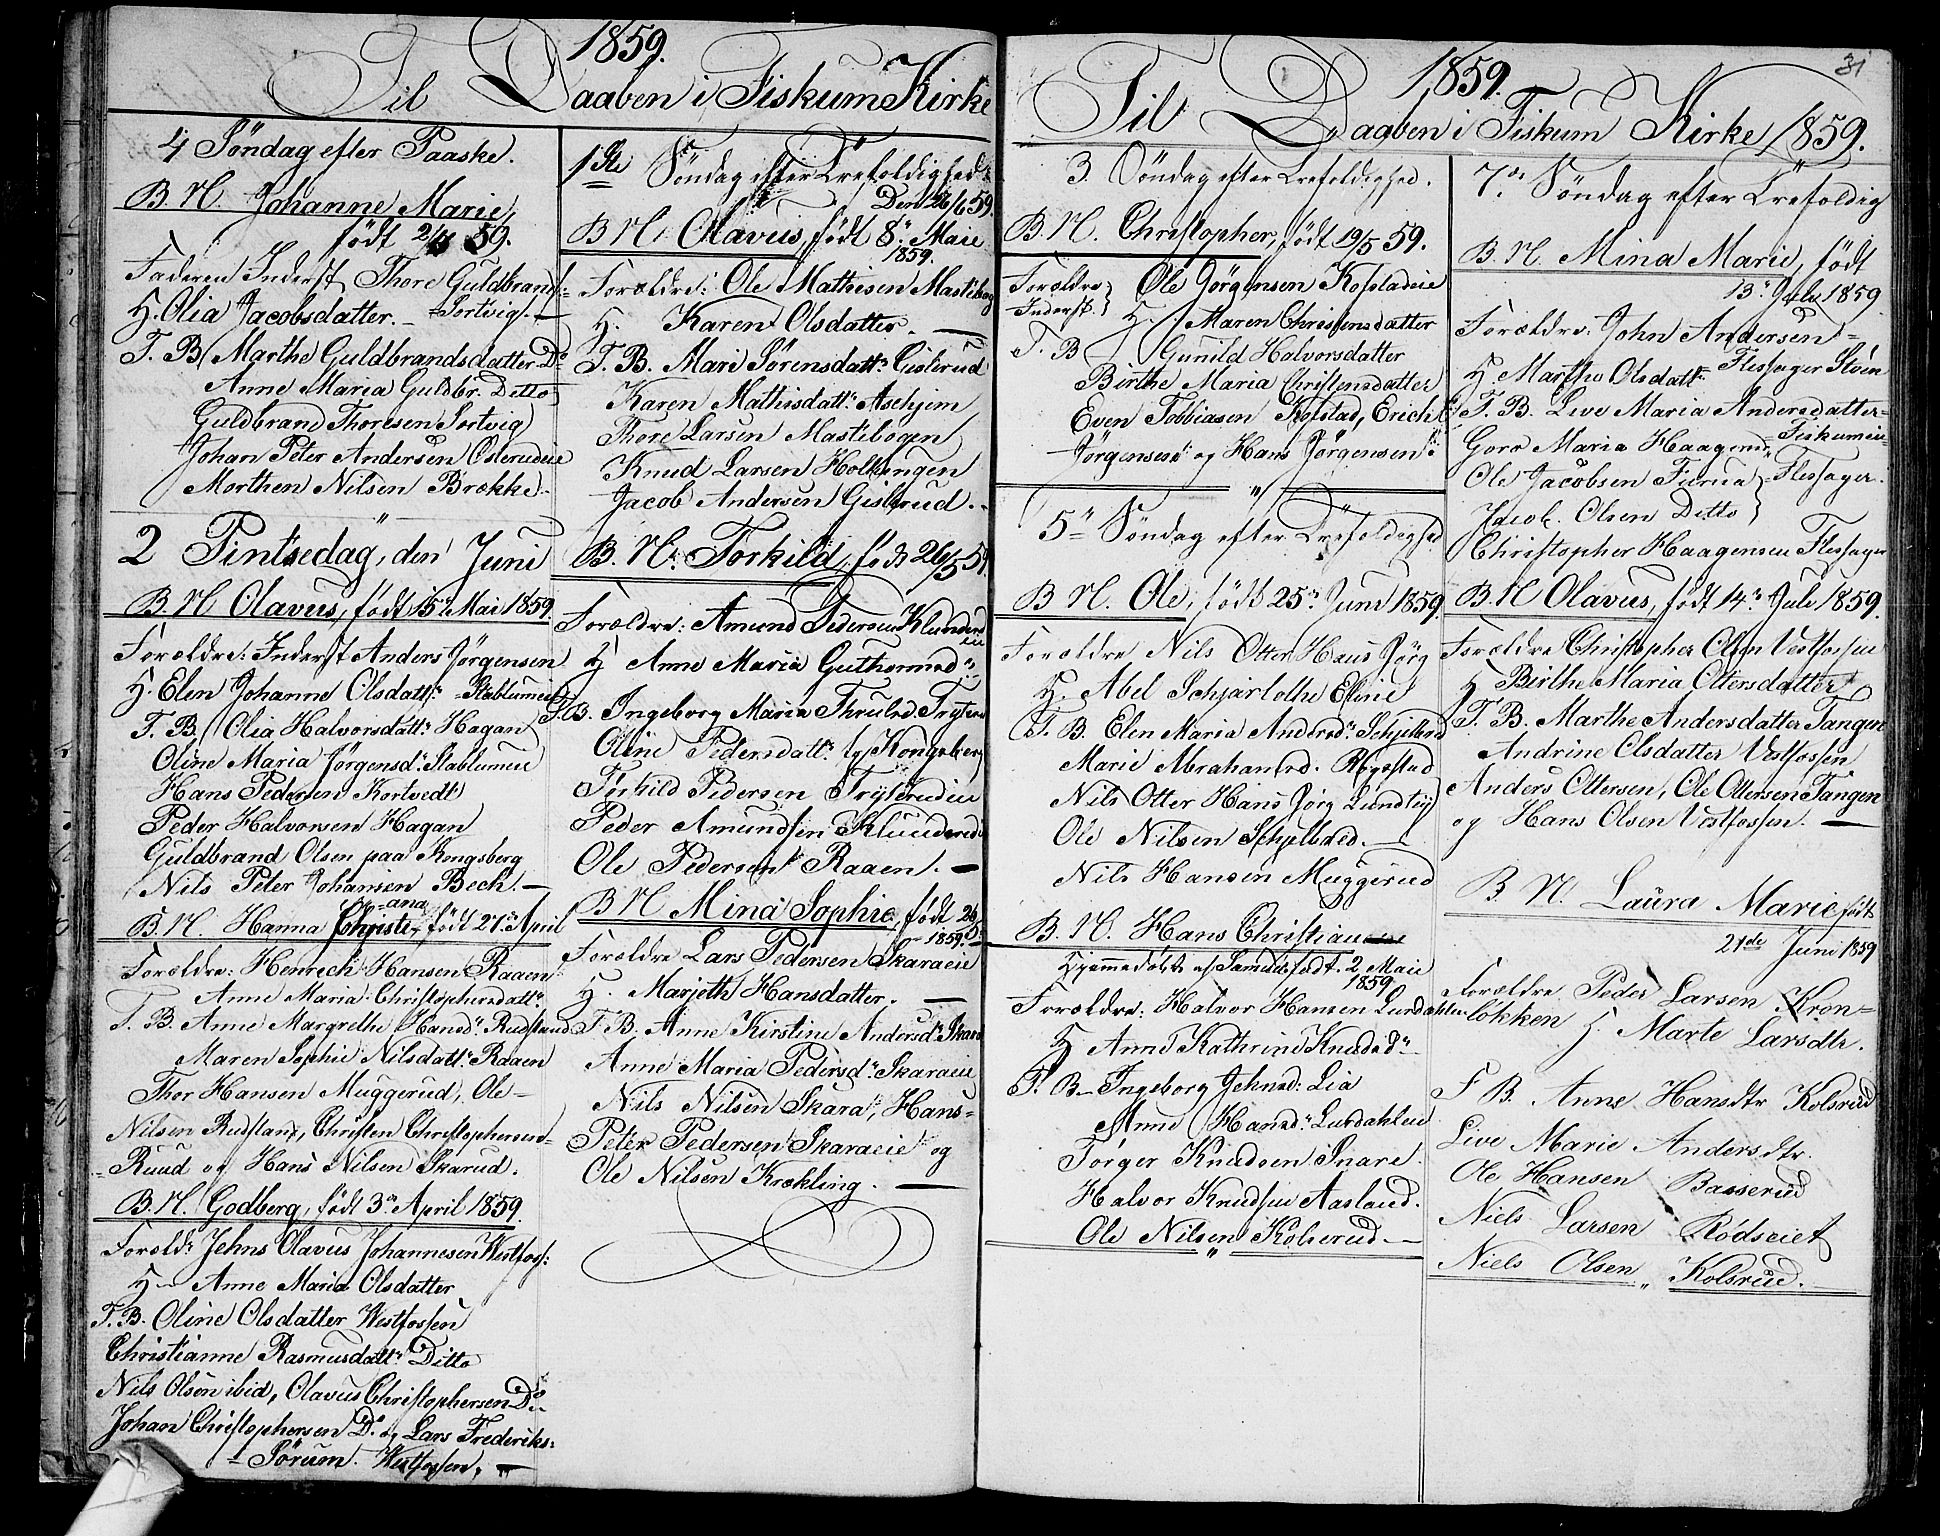 1859.
Til Daaben i Fiskum Kirke
4 Söndag efter Paaske.
B. N. Johanne Marie,
född 2/3 59.
Faderen Inderst, Thore Guldbrands:
H. Olia Jacobsdatter. - Sortvig. -
F. B. Marthe Guldbrandsdatter Do
Anne Maria Guldbr. Ditto
Guldbrand Thoresen Sortvig
Johan Peter Andersen Östereudeie
Morthen Nilsen Brække.
2 Pintsedag, den Juni
B. N. Olavus, född 15n Mai 1859.
Forældre: Inderst Anders Jörgensen
H. Elen Johanne Olsdattr Stablumeie
F. B. Olia Halvorsdattr Hagan
Oline Maria Jörgensdr Stablumeie
Hans Pedersen Kortvedt
Peder Halvorsen Hagan
Guldbrand Olsen paa Kongsberg
Nils Peter Johansen Bech. -
B. N. Hanna Christiana, född 27n April
Forældre: Henrech Hansen Raaen
Anne Maria Christophersdattr
F. B. Anne Margrethe Hansdr Rudstand
Maren Sophie Nilsdattr Raaen
Thor Hansen Muggerud, Ole
Nilsen Rudstand, Christen Christophersen
Ruud og Hans Nilsen Skarud.
B. N. Godberg, född 3n April 1859.
Foreld: Jehns Olavus Johannesen Westfoss:
H - Anne Maria Olsdatter
F. B. Oline Olsdatter Westfossen
Christianne Rasmusdattr Ditto
Nils Olsen ibid, Olavus Christophersen Do
Johan Christophersen Do og Lars Frederiks:
- Sörum. Westfossen. -
1ste Söndag efter Trefoldighed:
Den 26/6 59.
B. N. Olavus, född 8n Maie
1859.
Forældre: Ole Mathisen Mastebog
H. Karen Olsdatter. -
F. B. Mari Sörensdattr Gislerud
Karen Mathisdattr Aschjem
Thore Larsen Mastebogen
Knud Larsen Holtungen
Jacob Andersen Gislerud.
B. N. Torkild, föd 26/5 59.
Forældre: Amund Pedersen Klunderudeie
H Anne Maria Guthormsd:
F. B. Ingeborg Maria Thrulsd. Tryterud
Oline Pedersdattr by Kongsberg
Torkild Pedersen Tryterudeie
Peder Amundsen Klunderud
Ole Pedersen Raaen. -
B N Mina Sophie, född 26/5
1859.
Forældre Lars Pedersen Skaraeie
H. Marjethe Hansdatter. -
F. B. Anne Kirstine Andersdr Skara
Anne Maria Pedersdr Skaraeie
Nils Nilsen Skara, Hans-
Peter Pedersen Skaraeie og
Ole Nilsen Krækling. -
31
1859.
Til Daaben i Fiskum Kirke 1859.
3. Söndag efter Trefoldighed.
B. N. Christopher, född 19/5 59.
Forældre Inderst. Ole Jörgensen Kolstadeie
H. Maren Christensdatter
F. B Gunild Halvorsdatter
Birthe Maria Christensdatter
Even Tobbiasen Kolstad, Erich
Jörgensen og Hans Jörgensen.
5n Söndag efter Trefoldighed
B. N. Ole, född 25n Juni 1859.
Forældre Nils Otter Hans Jörg
H. Abel Schjarlothe Eline
F. B. Elen Maria Andersdr Schjelbred
Marie Abrahamsd. Rögestad
Nils Otter Hans Jörg Lundteig
Ole Nilsen Schjelbred. -
Nils Hansen Muggerud
B. N. Hans Christian
Hjemmedöbt af Samuels födt. 2 Maie
1859.
Forældre: Halvor Hansen Lurdahlen
H Anne Kathrine Knudsdr
F. B - Ingeborg Jehnsd: Lia
Anne Hansdr Lurdahlen
Törger Knudsen Snare.
Halvor Knudsen Aasland.
Ole Nilsen Kolserud. -
7n Söndag efter Trefoldig
B. N. Mina Marie, född
13n Juli 1859.
Forældre: John Andersen
H. Marthe Olsdattr Flessager Stöen
F. B. Live Maria Andersdatter
Goro Maria Haagensd. Fiskumeie
Ole Jacobsen Furua Flessager.
Jacob. Olsen Ditto
Christopher Haagensen Flessager
B. N Olavus, född 14n Juli 1859.
Forældre Christopher Olsen Vestfossen
H Birthe Maria Ottersdatter
F. B. Marthe Andersdatter Tangen
Andrine Olsdatter Vestfossen
Anders Ottersen, Ole Ottersen Tangen
og Hans Olsen Vestfossen. -
B. N. Laura Marie født
21de Juni 1859
Forældre Peder Larsen Kron-
løkken H. Marte Larsdtr.
F B. Anne Hansdtr Kolsrud
Live Marie Andersdtr.
Ole Hansen Basserud
Niels Larsen Rödseiet
Niels Olsen Kolsrud.